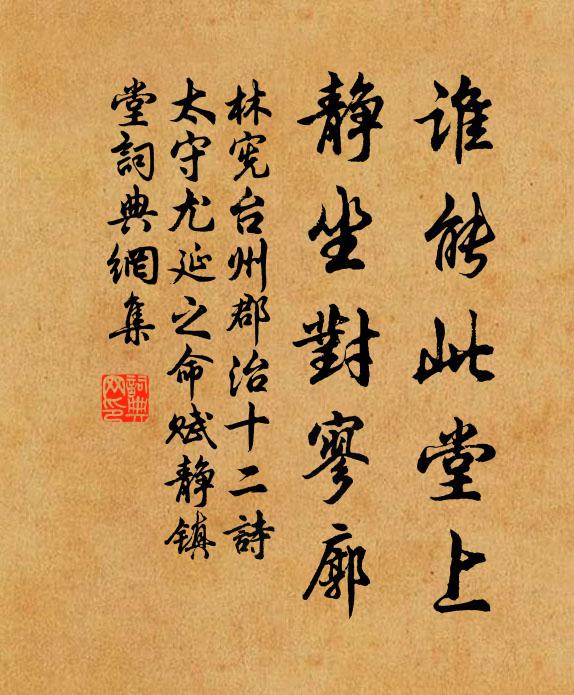 谁能此堂上
静坐對寥廓
林宪台州郡治十二詩
太守尤延之命赋静镇
堂詞典網集
詞典网印